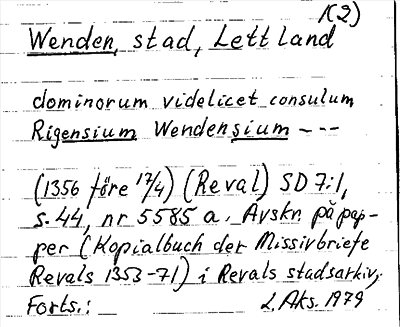 1(2)
Wenden, stad, Lettland
dominorum videlicet consulum
Rigensium Wendensium ---
(1356 före 17/4) (Reval) SD 7:1,
s. 44, nr 5585 a. Avskr. på pap-
per (Kopialbuch der Missivbriefe
Revals 1353-71) i Revals stadsarkiv,
Forts.: L. Aks. 1979